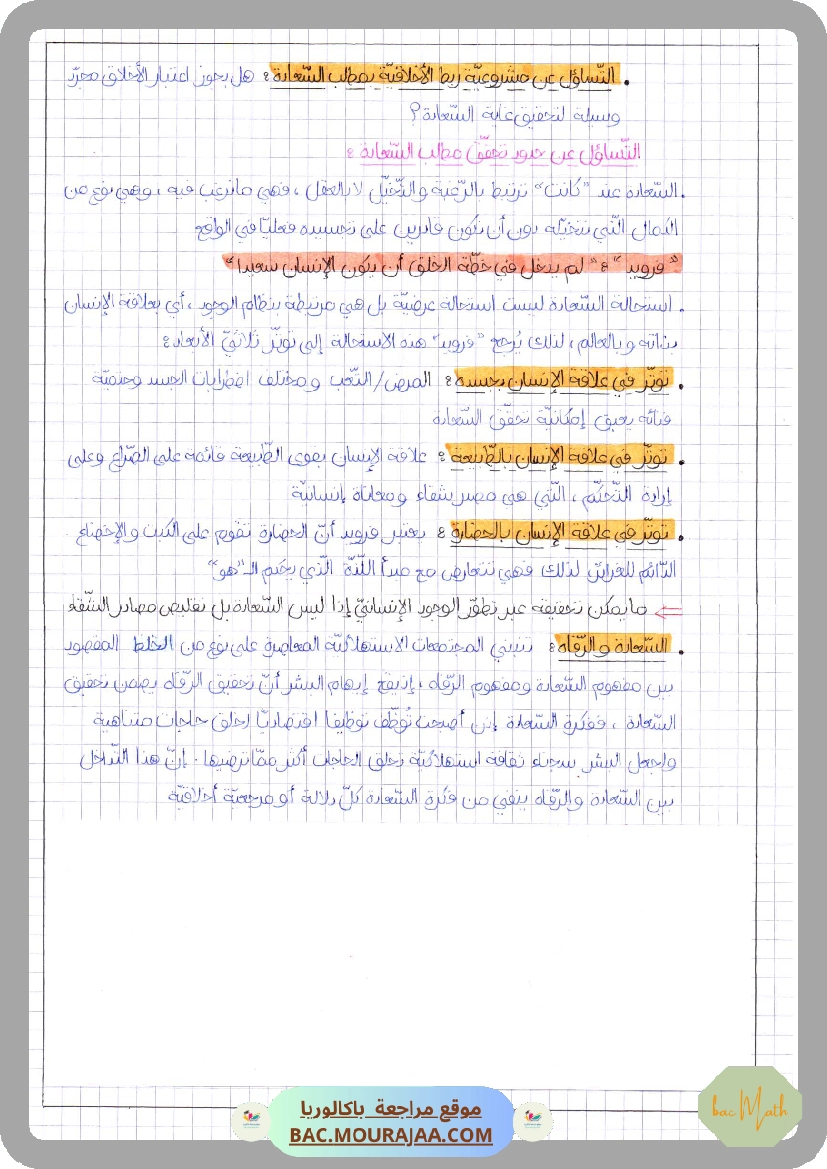 • التّساؤل عن مشروعيّة ربط الأخلاقيّة بمطلب السّعادة : هل يجوز اعتبار الأخلاق مجرّد
وسيلة لتحقيق غاية السّعادة ؟
التّساؤل عن حدود تحقّق مطلب السّعادة :
• السّعادة عند "كانت" ترتبط بالرّغبة والتّخيّل لا بالعقل ، فهي ما نرغب فيه ، وهي نوع من
الكمال الّتي نتخيّله دون أن نكون قادرين على تجسيده فعليّا في الواقع
"فرويد" : "لم يدخل في خطّة الخلق أن يكون الإنسان سعيدا"
• استحالة السّعادة ليست استحالة عرضيّة بل هي مرتبطة بنظام الوجود ، أي بعلاقة الإنسان
بذاته وبالعالم ، لذلك يُرجع "فرويد" هذه الاستحالة إلى توتّر ثلاثيّ الأبعاد :
• توتّر في علاقة الإنسان بجسده : المرض/التّعب ومختلف اضطرابات الجسد وحتميّة
فنائه يعيق إمكانيّة تحقّق السّعادة
• توتّر في علاقة الإنسان بالطّبيعة : علاقة الإنسان بقوى الطّبيعة قائمة على الصّراع وعلى
إرادة التّحكّم ، الّتي هي مصدر شقاء ومعاناة إنسانيّة
• توتّر في علاقة الإنسان بالحضارة : يعتبر فرويد أنّ الحضارة تقوم على الكبت والإخضاع
الدّائم للغرائز لذلك فهي تتعارض مع مبدأ اللّذّة الّذي يحكم الـ"هو"
⇐ ما يمكن تحقيقه عبر تطوّر الوجود الإنسانيّ إذا ليس السّعادة بل تقليص مصادر الشّقاء
• السّعادة والرّفاه : تنبني المجتمعات الاستهلاكيّة المعاصرة على نوع من الخلط المقصود
بين مفهوم السّعادة ومفهوم الرّفاه ، إذ يقع إيهام البشر أنّ تحقيق الرّفاه يضمن تحقيق
السّعادة ، ففكرة السّعادة إذن أصبحت تُوظّف توظيفا اقتصاديّا لخلق حاجات متناهية
ولجعل البشر سجناء ثقافة استهلاكيّة تخلق الحاجات أكثر ممّا ترضيها . إنّ هذا التّداخل
بين السّعادة والرّفاه ينفي من فكرة السّعادة كلّ دلالة أو مرجعيّة أخلاقيّة
موقع مراجعة باكالوريا
BAC.MOURAJAA.COM
bac Math